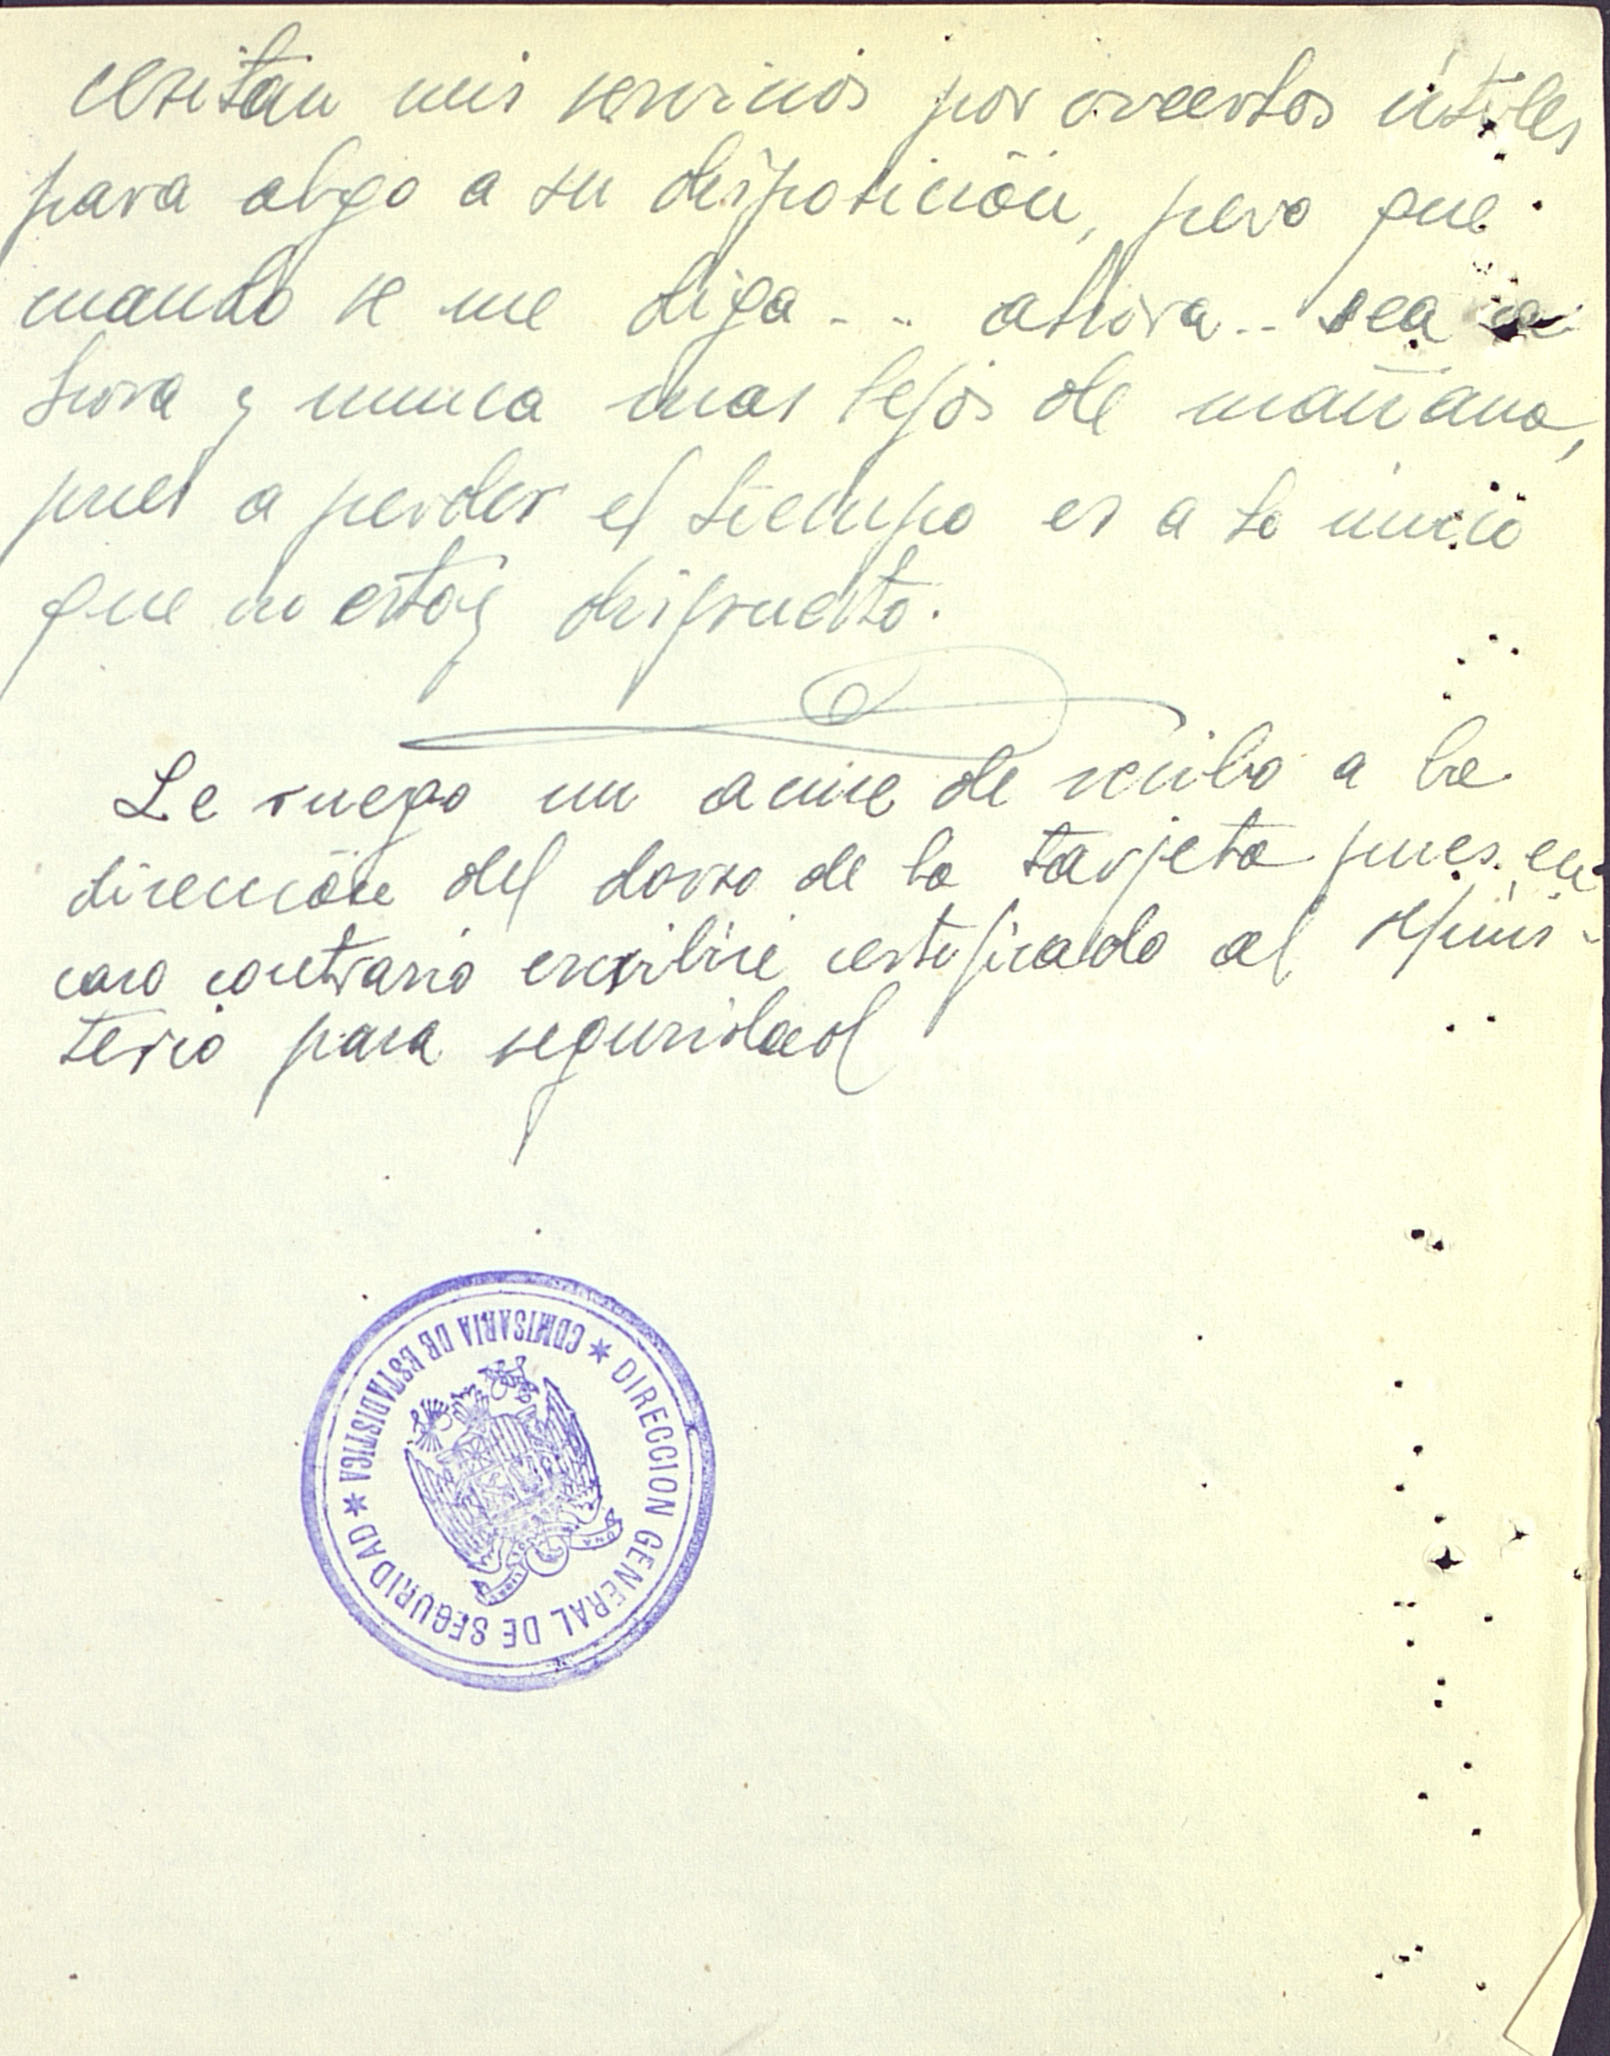 cesitan mis servicios por creerlos útiles
para algo a su disposición, pero que
cuando se me diga - - ahora - - sea a
hora y nunca mas lejos de mañana,
pues a perder el tiempo es a lo unico
que no estoy dispuesto.
Le ruego un acuse de recibo a la
dirección del dorso de la tarjeta pues en
caso contrario escribiré certificado al Minis-
terio para seguridad
* DIRECCION GENERAL DE SEGURIDAD *
COMISARIA DE ESTADISTICA